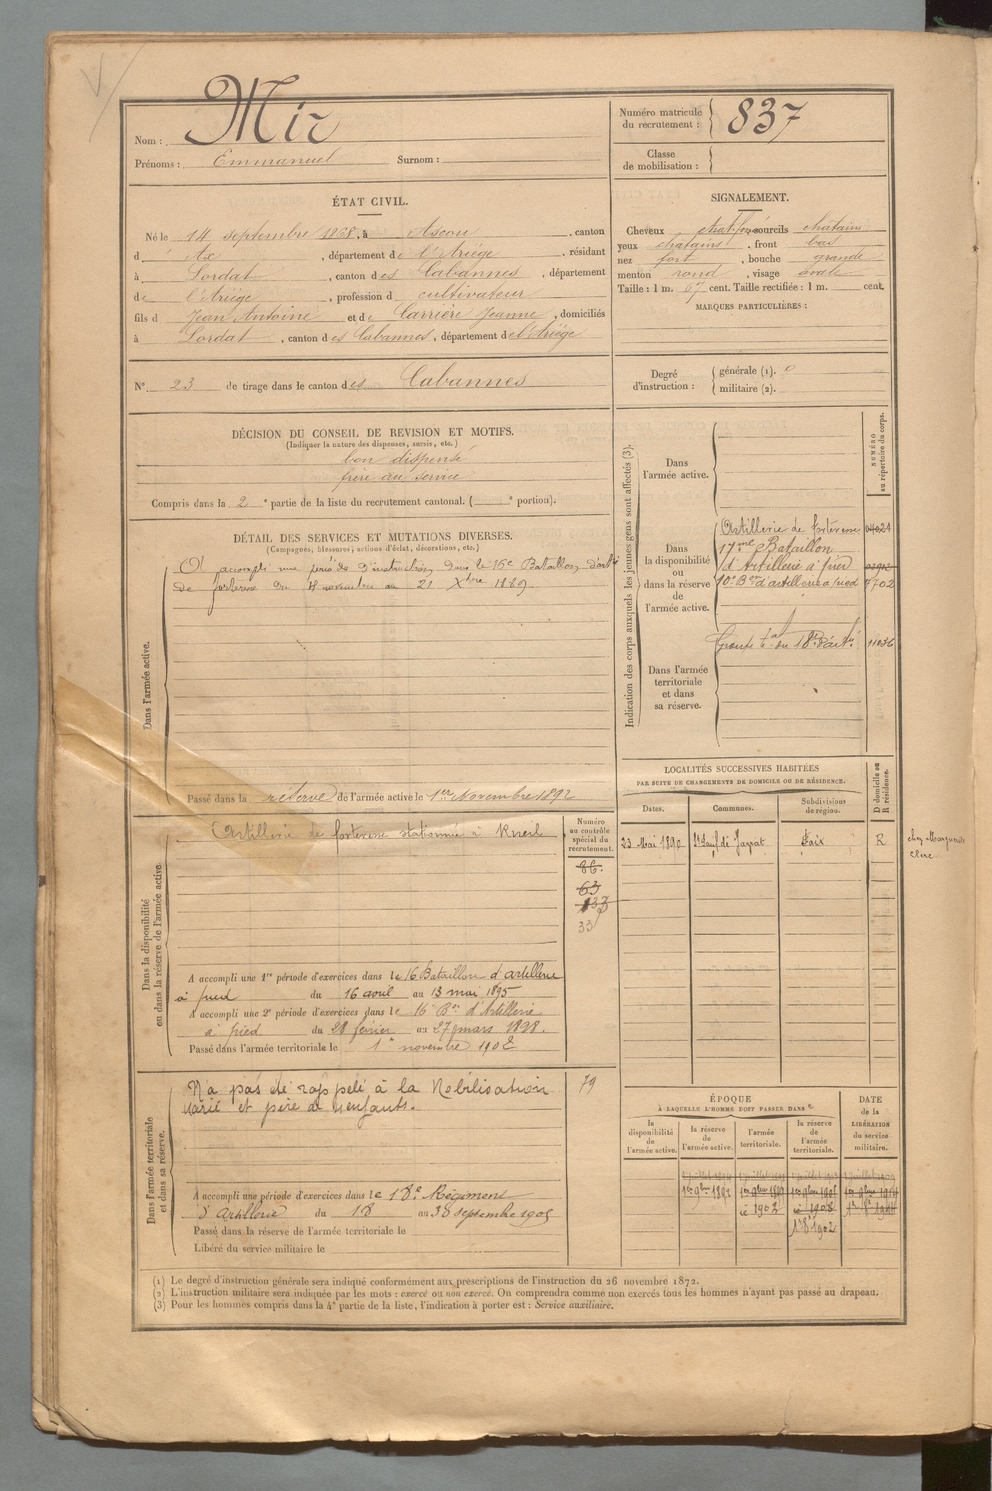 Nom : Mir
Prénoms : Emmanuel Surnom :
Numéro matricule du recrutement : 837
Classe de mobilisation :
ÉTAT CIVIL.
Né le 14 septembre 1868, à Ascou, canton
d' Ax, département de l'Ariége, résidant
à Lordat, canton des Cabannes, département
de l'Ariége, profession d cultivateur
fils d Jean Antoine et de Carrière Jeanne, domiciliés
à Lordat, canton des Cabannes, département de l'Ariége
N° 23 de tirage dans le canton des Cabannes
SIGNALEMENT.
Cheveux sourcils châtains
yeux châtains, front bas
nez fort, bouche grande
menton rond, visage ovale
Taille : 1 m. 67 cent. Taille rectifiée : 1 m. cent.
MARQUES PARTICULIÈRES :
Degré d'instruction : générale (1). 0
militaire (2).
DÉCISION DU CONSEIL DE REVISION ET MOTIFS.
(Indiquer la nature des dispenses, sursis, etc.)
bon dispensé
frère au service
Compris dans la 2e partie de la liste du recrutement cantonal. ( e portion).
DÉTAIL DES SERVICES ET MUTATIONS DIVERSES.
(Campagnes, blessures, actions d'éclat, décorations, etc.)
Dans l'armée active.
A accompli une d'instruction dans le 16e Bataillon d'art
de forteresse du novembre au 21 Xbre 1889
Passé dans la réserve de l'armée active le 1er Novembre 1892
Indication des corps auxquels les jeunes gens sont affectés (3).
NUMÉRO au répertoire du corps.
Dans l'armée active.
Dans la disponibilité ou dans la réserve de l'armée active.
Artillerie de forteresse
17me Bataillon
d'Artillerie à pied
10e Bon d'artillerie à pied 4702
Dans l'armée territoriale et dans sa réserve.
Groupe du 18e d'art 11036
Dans la disponibilité ou dans la réserve de l'armée active.
Artillerie de forteresse stationnée à Rueil
Numéro au contrôle spécial du recrutement.
86.
63
133
33
A accompli une 1re période d'exercices dans le 16 Bataillon d'artillerie
à pied du 16 avril au 13 mai 1895
A accompli une 2e période d'exercices dans le 16e Bon d'Artillerie
à pied du 28 février au 27 mars 1898.
Passé dans l'armée territoriale le 1er novembre 1902
LOCALITÉS SUCCESSIVES HABITÉES
PAR SUITE DE CHANGEMENTS DE DOMICILE OU DE RÉSIDENCE.
Dates. Communes. Subdivisions de région. D domicile ou R résidence.
23 Mai 1890 St Paul de Jarrat Foix R chez Marguerite
Clerc
Dans l'armée territoriale et dans sa réserve.
N'a pas été rappelé à la Mobilisation 79
marié et père de enfants.
A accompli une période d'exercices dans le 18e Régiment
d'Artillerie du 18 au septembre 1905
Passé dans la réserve de l'armée territoriale le
Libéré du service militaire le
ÉPOQUE
À LAQUELLE L'HOMME DOIT PASSER DANS
la disponibilité de l'armée active.
la réserve de l'armée active.
l'armée territoriale.
la réserve de l'armée territoriale.
DATE de la LIBÉRATION du service militaire.
1er 9bre 1892
1902
1908
(1) Le degré d'instruction générale sera indiqué conformément aux prescriptions de l'instruction du 26 novembre 1872.
(2) L'instruction militaire sera indiquée par les mots : exercé ou non exercé. On comprendra comme non exercés tous les hommes n'ayant pas passé au drapeau.
(3) Pour les hommes compris dans la 4e partie de la liste, l'indication à porter est : Service auxiliaire.